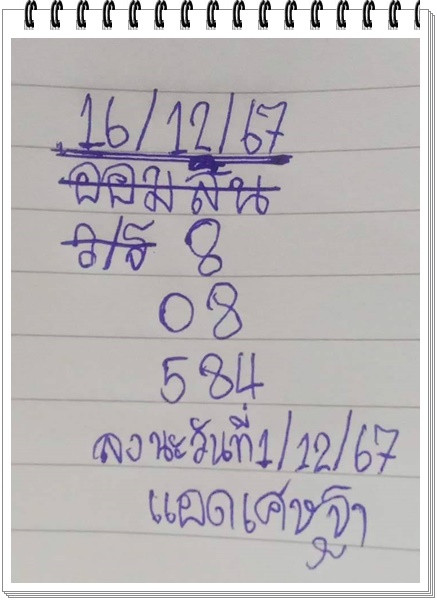 16/12/67
ออมสิน
ว/ร 8
08
584
ลงนะวันที่1/12/67
แอดเศษฐา